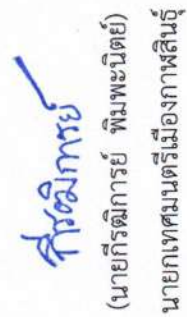 กีรฒิการย์
(นายกีรฒิการย์ พิมพะนิตย์)
นายกเทศมนตรีเมืองกาฬสินธุ์